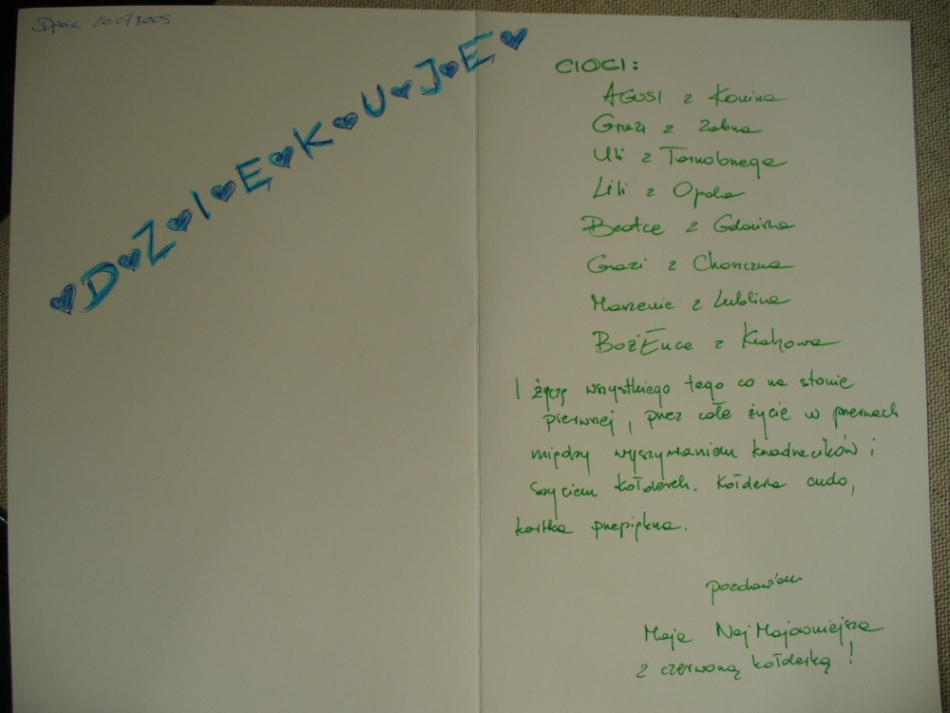 10.07.2009
D♥Z♥I♥E♥K♥U♥J♥E♥
CIOCI:
AGUSI z Konina
Grazi z Żabna
Uli z Tarnobrzega
Lili z Opola
Beatce z Gdańska
Grazi z Choszczna
Marzenie z Lublina
BożEnce z Krakowa
I życzę wszystkiego tego co na stronie
pierwnej, przez całe życie w przerwach
między wyszywaniem kwadracików i
szyciem kołderek. Kołderka cudo,
kartka przepiękna.
pozdrawiam
Maja NajMajowniejsza
z czerwoną kołderką!